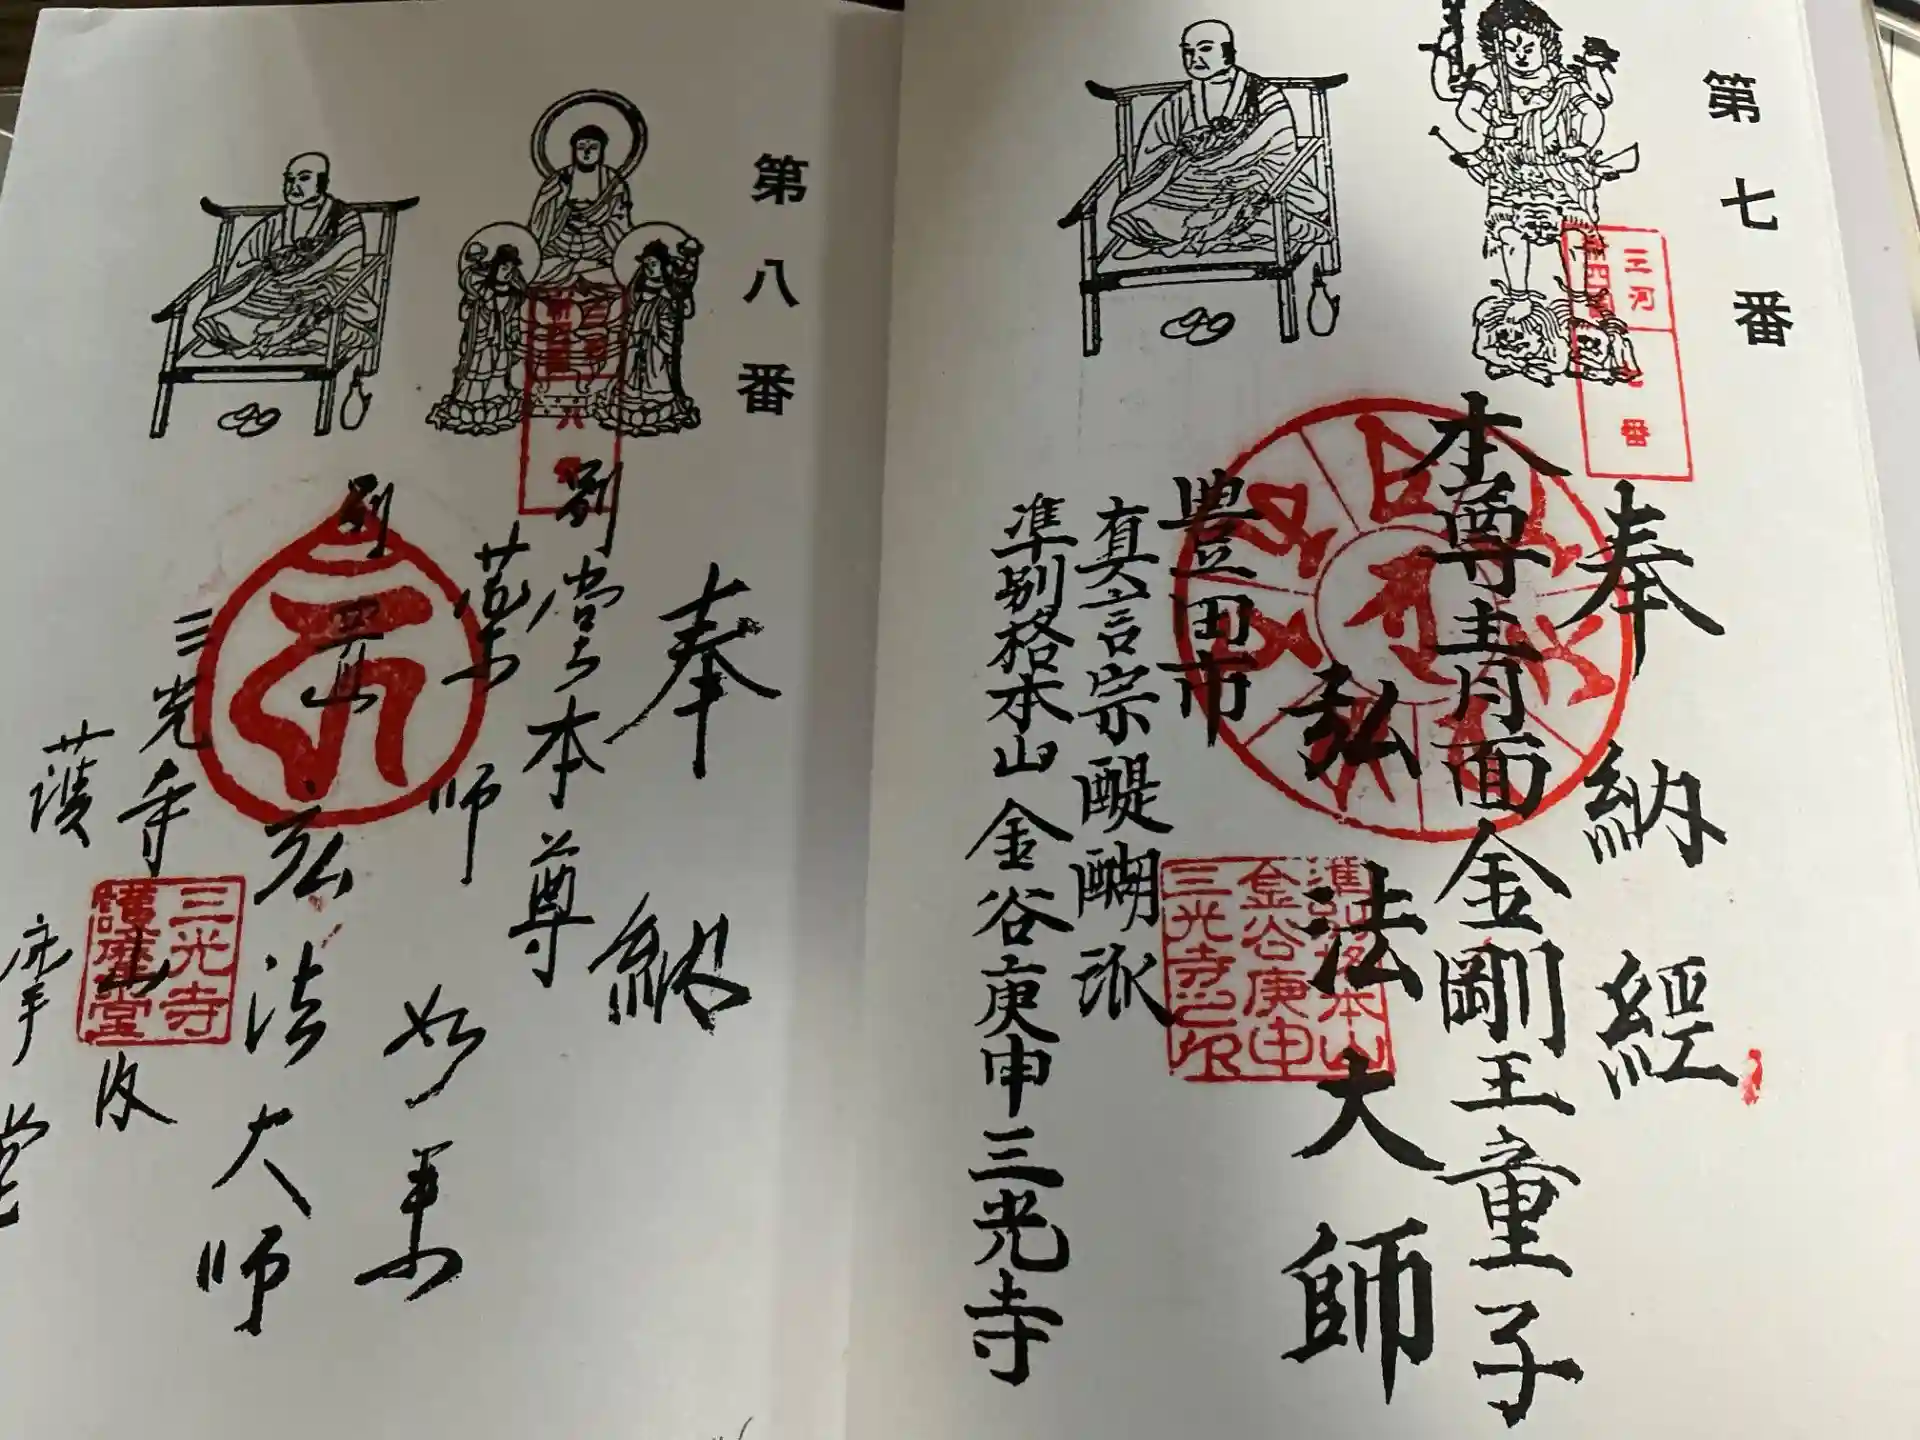 第七番
三河
七番
奉納經
本尊青面金剛王童子
弘法大師
豊田市
真言宗醍醐派
準別格本山 金谷庚申三光寺
準別格本山
金谷庚申
三光寺之印
第八番
奉納
別堂本尊
薬師如来
弘法大師
三光寺
護摩堂
三光寺
護摩堂